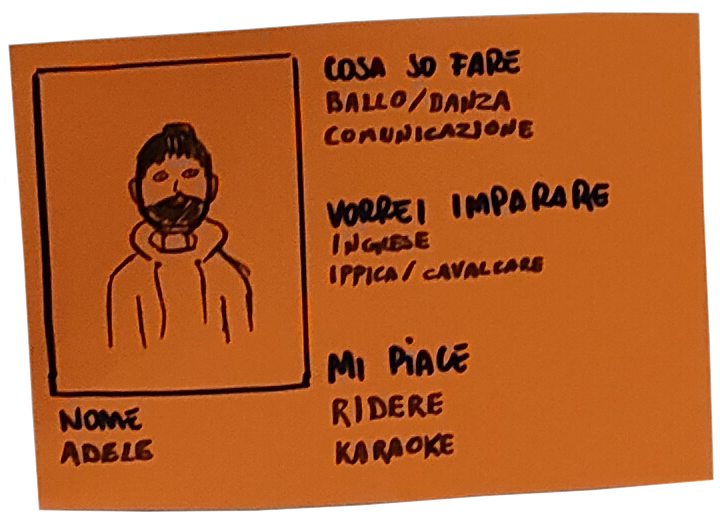 COSA SO FARE
BALLO/DANZA
COMUNICAZIONE
VORREI IMPARARE
INGLESE
IPPICA/CAVALCARE
MI PIACE
RIDERE
KARAOKE
NOME
ADELE